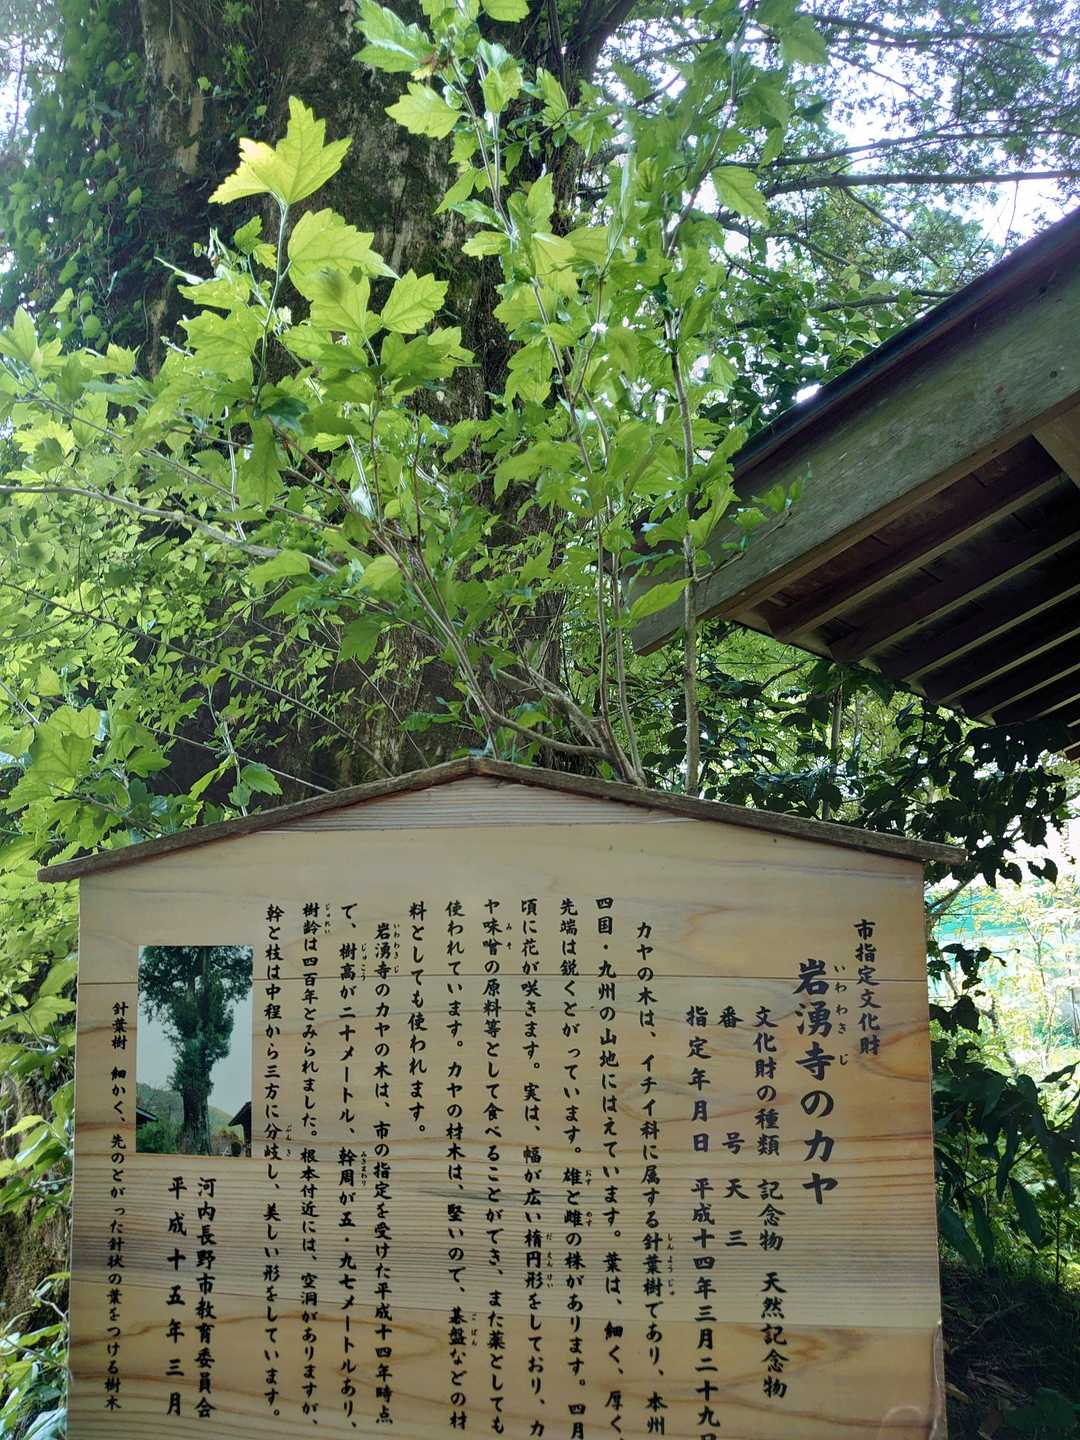 市指定文化財
岩湧寺のカヤ
いわわきじ
文化財の種類 記念物 天然記念物
番号 天三
指定年月日 平成十四年三月二十九日
カヤの木は、イチイ科に属する針葉樹であり、本州
しんようじゅ
四国・九州の山地にはえています。葉は、細く、厚く、
先端は鋭くとがっています。雄と雌の株があります。四月
おす
めす
頃に花が咲きます。実は、幅が広い楕円形をしており、カ
だえんけい
ヤ味噌の原料等として食べることができ、また薬としても
みそ
使われています。カヤの材木は、堅いので、碁盤などの材
ごばん
料としても使われます。
岩湧寺のカヤの木は、市の指定を受けた平成十四年時点
いわわきじ
で、樹高が二十メートル、幹周が五・九七メートルあり、
じゅこう
みきまわり
樹齢は四百年とみられました。根本付近には、空洞がありますが、
じゅれい
幹と枝は中程から三方に分岐し、美しい形をしています。
ぶんき
河内長野市教育委員会
平成十五年三月
針葉樹 細かく、先のとがった針状の葉をつける樹木